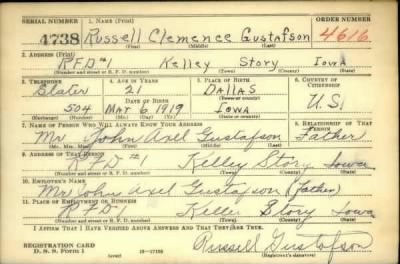 SERIAL NUMBER 1. NAME (Print) ORDER NUMBER
4738 Russell Clemence Gustafson 4616
(First) (Middle) (Last)
2. ADDRESS (Print)
RFD#1 Kelley Story Iowa
(Number and street or R. F. D. number) (Town) (County) (State)
3. TELEPHONE 4. AGE IN YEARS 5. PLACE OF BIRTH 6. COUNTRY OF CITIZENSHIP
Slater 21 DALLAS
DATE OF BIRTH
504 MAY 6 1919 IOWA U.S.
(Exchange) (Number) (Mo.) (Day) (Yr.) (State or country)
7. NAME OF PERSON WHO WILL ALWAYS KNOW YOUR ADDRESS 8. RELATIONSHIP OF THAT PERSON
Mr. John Axel Gustafson Father
(Mr., Mrs., Miss) (First) (Middle) (Last)
9. ADDRESS OF THAT PERSON
RFD#1 Kelley Story Iowa
(Number and street or R. F. D. number) (Town) (County) (State)
10. EMPLOYER'S NAME
Mr John Axel Gustafson (father)
11. PLACE OF EMPLOYMENT OR BUSINESS
RFD1 Kelley Story Iowa
(Number and street or R. F. D. number) (Town) (County) (State)
I AFFIRM THAT I HAVE VERIFIED ABOVE ANSWERS AND THAT THEY ARE TRUE.
REGISTRATION CARD
D. S. S. Form 1 (over) Russell Gustafson
(Registrant's signature)